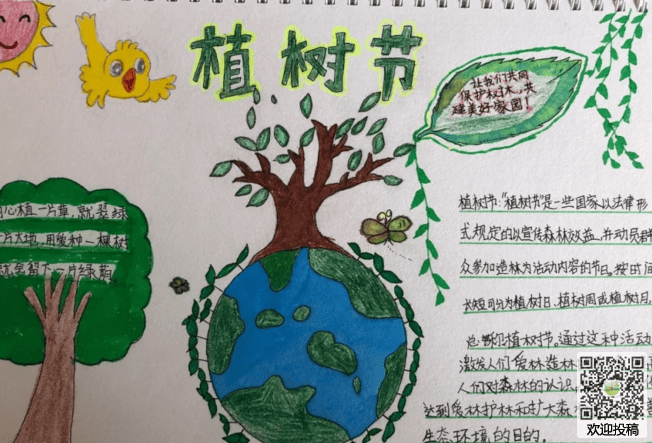 植树节
让我们共同
保护树木,共
建美好家园!
心植一片草,就装绿
片天地,用爱种一棵树
就会留下一片绿荫
植树节:“植树节”是一些国家以法律形
式规定的以宣传森林效益,并动员群
众参加造林为活动内容的节日。按时间
长短可分为植树日、植树周或植树月,
总称植树节。通过这种活动
激发人们爱林造林
人们对森林的认识
达到爱林护林和扩大森
生态环境的目的。
欢迎投稿